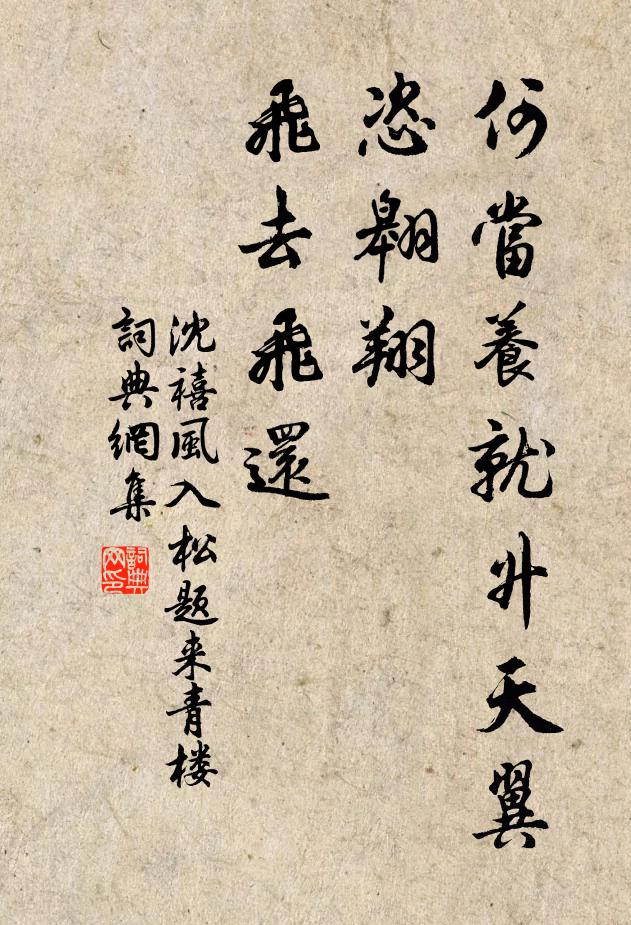 何當養就升天翼
恣翱翔
飛去飛還
沈禧風入松題来青楼
詞典網集
詞典網印